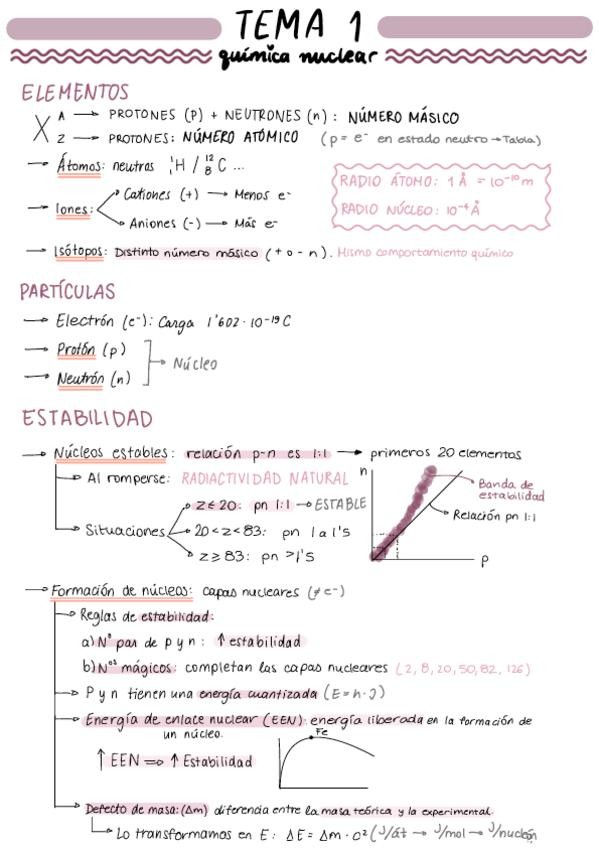 TEMA 1
química nuclear
ELEMENTOS
X A → PROTONES (P) + NEUTRONES (n) : NÚMERO MÁSICO
Z → PROTONES: NÚMERO ATÓMICO (p = e⁻ en estado neutro → Tabla)
→ Átomos: neutras ¹₁H / ¹²₈C ...
RADIO ÁTOMO: 1 Å = 10⁻¹⁰ m
RADIO NÚCLEO: 10⁻⁴ Å
→ Iones: Cationes (+) → Menos e⁻
Aniones (-) → Más e⁻
→ Isótopos: Distinto número másico (+ o - n). Mismo comportamiento químico
PARTÍCULAS
→ Electrón (e⁻): Carga 1'602 · 10⁻¹⁹ C
→ Protón (p)
→ Neutrón (n)
→ Núcleo
ESTABILIDAD
→ Núcleos estables: relación p-n es 1:1 → primeros 20 elementos
→ Al romperse: RADIACTIVIDAD NATURAL
→ Situaciones
z ≤ 20: pn 1:1 → ESTABLE
20 < z < 83: pn 1 a 1'5
z ≥ 83: pn > 1'5
n
Banda de
estabilidad
Relación pn 1:1
p
→ Formación de núcleos: capas nucleares (≠ e⁻)
→ Reglas de estabilidad:
a) Nº par de p y n: ↑ estabilidad
b) Nºˢ mágicos: completan las capas nucleares (2, 8, 20, 50, 82, 126)
→ P y n tienen una energía cuantizada (E = h · ʋ)
→ Energía de enlace nuclear (EEN): energía liberada en la formación de
un núcleo.
Fe
↑ EEN ⇒ ↑ Estabilidad
→ Defecto de masa: (Δm) diferencia entre la masa teórica y la experimental.
→ Lo transformamos en E: ΔE = Δm · c² (J/át → J/mol → J/nucleón